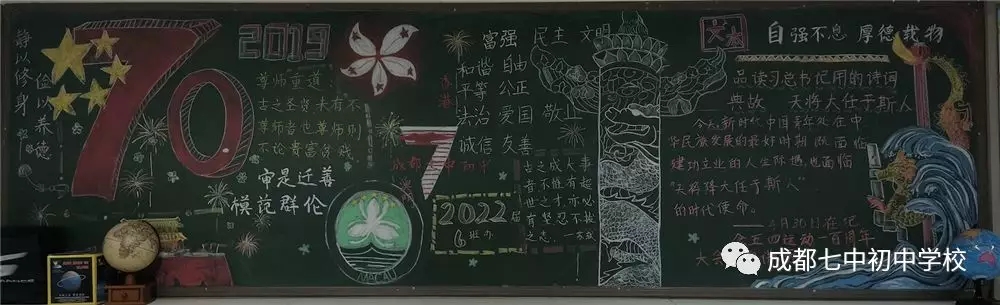 静以修身
俭以养德
70
2019
尊师重道
古之圣贤未有不
尊师者也尊师则
不论贵富贫贱
审是迁善
模范群伦
MACAU
香港
7
2022届
6班办
富强 民主 文明
和谐 自由
平等 公正
法治 爱国 敬业
诚信 友善
古之成大事
者不惟有
世之才亦必
有坚忍不拔
之志
自强不息 厚德载物
品读习总书记用的诗词
典故 天将大任于斯人
今天,新时代中国青年处在中
华民族发展的最好时期,既面临
建功立业的人生际遇,也面临
"天将降大任于斯人"
的时代使命。
月30日在纪
念五四运动一百周年
大会
成都七中初中学校